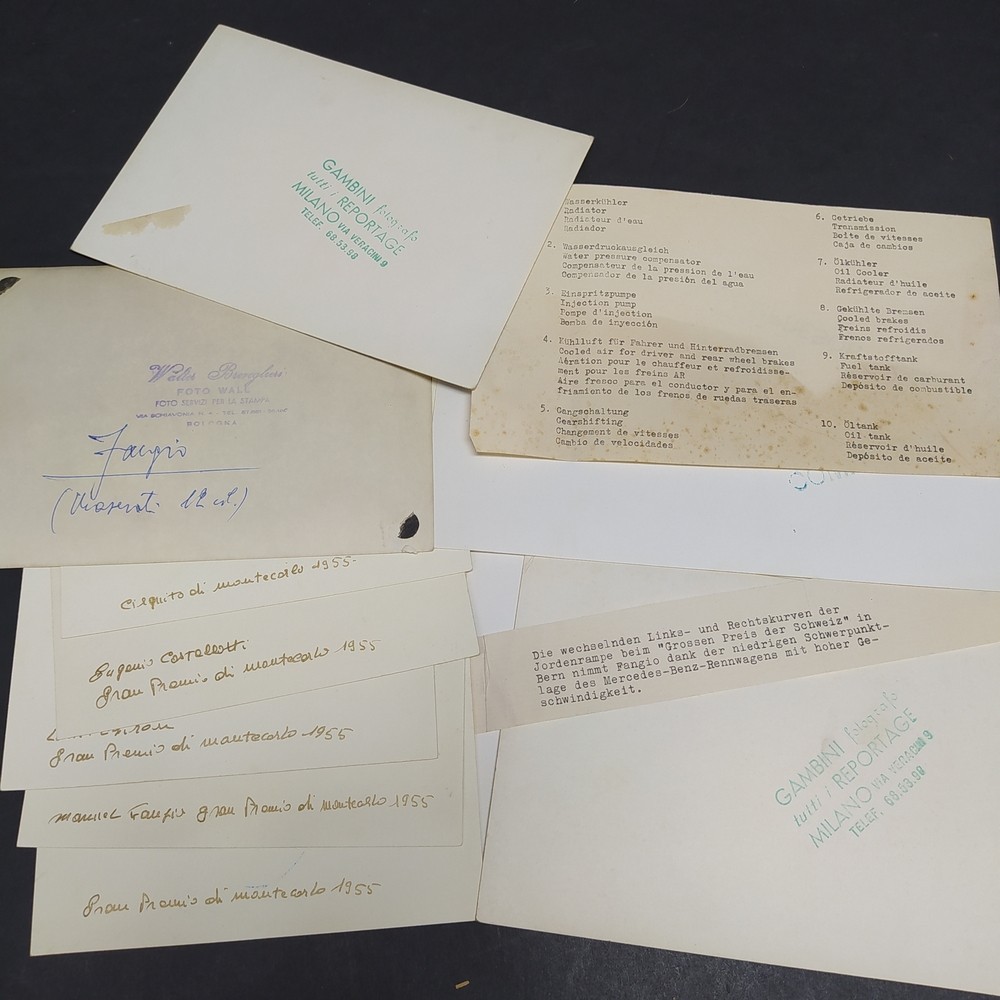 GAMBINI fotografo
tutti i REPORTAGE
MILANO VIA VERACINI 9
TELEF. 68.53.98
Wasserkühler
Radiator
Radiateur d'eau
Radiador
2. Wasserdruckausgleich
Water pressure compensator
Compensateur de la pression de l'eau
Compensador de la presión del agua
3. Einspritzpumpe
Injection pump
Pompe d'injection
Bomba de inyección
4. Kühlluft für Fahrer und Hinterradbremsen
Cooled air for driver and rear wheel brakes
Aération pour le chauffeur et refroidisse-
ment pour les freins AR
Aire fresco para el conductor y para el en-
friamiento de los frenos de ruedas traseras
5. Gangschaltung
Gearshifting
Changement de vitesses
Cambio de velocidades
6. Getriebe
Transmission
Boite de vitesses
Caja de cambios
7. Ölkühler
Oil Cooler
Radiateur d'huile
Refrigerador de aceite
8. Gekühlte Bremsen
Cooled brakes
Freins refroidis
Frenos refrigerados
9. Kraftstofftank
Fuel tank
Réservoir de carburant
Depósito de combustible
10. Öltank
Oil tank
Réservoir d'huile
Depósito de aceite
Walter Breveglieri
FOTO WALL
FOTO SERVIZI PER LA STAMPA
BOLOGNA
Fangio
(Maserati 12 cil.)
Cirquito di montecarlo 1955
Eugenio Castellotti
Gran Premio di montecarlo 1955
Gran Premio di montecarlo 1955
manuel Fangio gran Premio di montecarlo 1955
Gran Premio di montecarlo 1955
Die wechselnden Links- und Rechtskurven der
Jordenrampe beim "Grossen Preis der Schweiz" in
Bern nimmt Fangio dank der niedrigen Schwerpunkt-
lage des Mercedes-Benz-Rennwagens mit hoher Ge-
schwindigkeit.
GAMBINI fotografo
tutti i REPORTAGE
MILANO VIA VERACINI 9
TELEF. 68.53.98